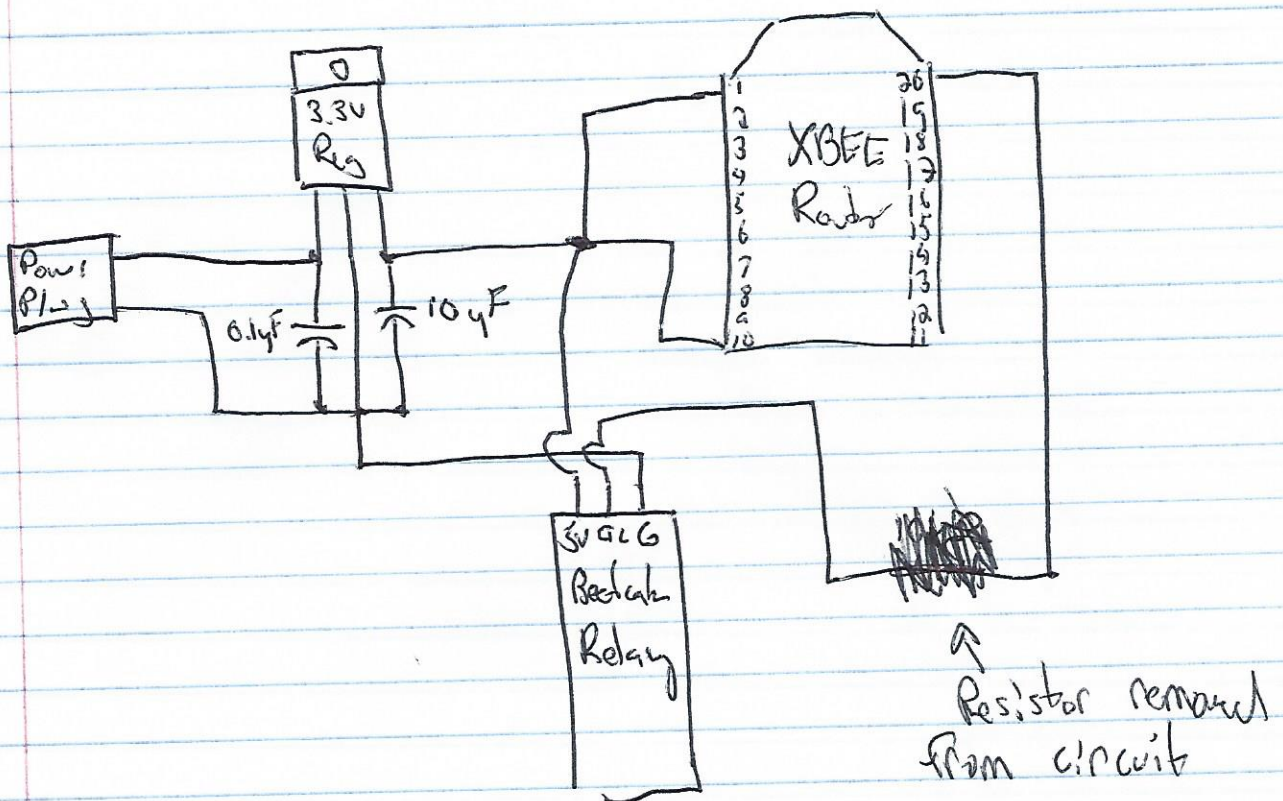 0
3.3V
Reg
Power
Plug
0.1yF
10 yF
1
2
3
4
5
6
7
8
9
10
XBEE
Router
20
19
18
17
16
15
14
13
12
11
5V CTL G
Beefcake
Relay
Resistor removed
from circuit